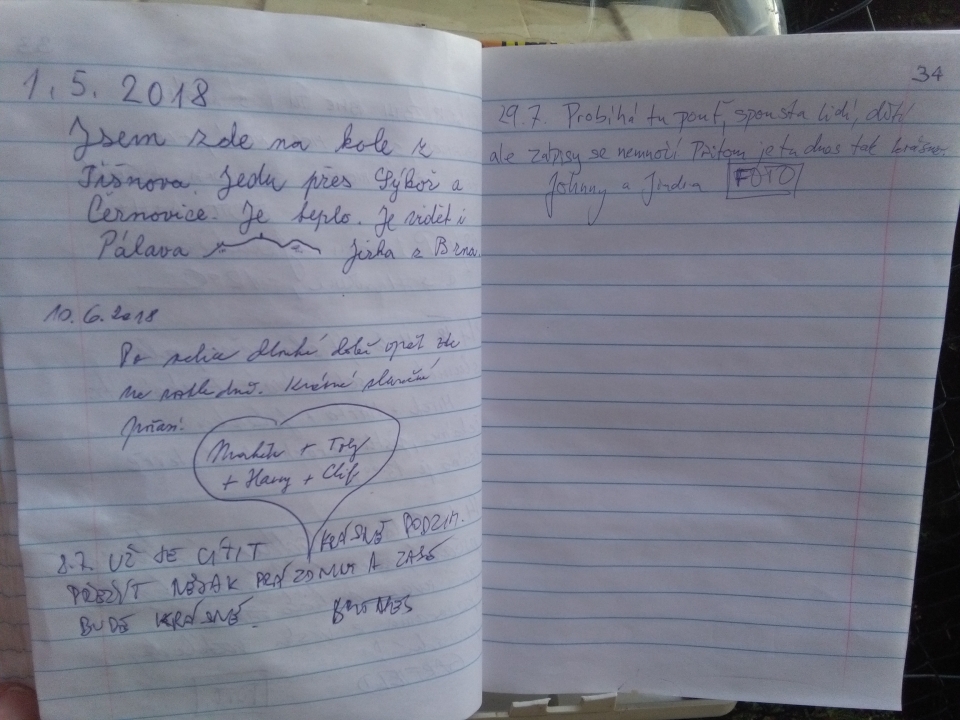 1. 5. 2018
Jsem zde na kole z
Tišnova. Jedu přes Sýkoř a
Černovice. Je teplo. Je vidět i
Pálava Jirka z Brna.
10. 6. 2018
Po velice dlouhé době opět zde
na rozhledně. Krásné sluneční
počasí.
Markét + Toby
+ Harry + Clif
8.7. UŽ JE CÍTIT KRÁSNĚ PODZIM.
PŘEŽÍT NĚJAK PRÁZDNINY A ZASE
BUDE KRÁSNĚ.
34
29.7. Probíhá tu pouť, spousta lidí, dětí
ale zápisy se nemnoží Přitom je tu dnes tak krásně.
Johnny a Jindra FOTO